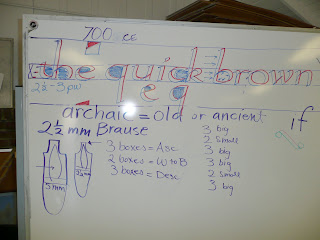 700 ce
the quick brown
2½-3pw
e g
archaic = old or ancient if
2½ mm Brause
3 boxes = Asc
2 boxes = W to B
3 boxes = Desc
3 big
2 small
3 big
3 big
2 small
3 big
5 mm